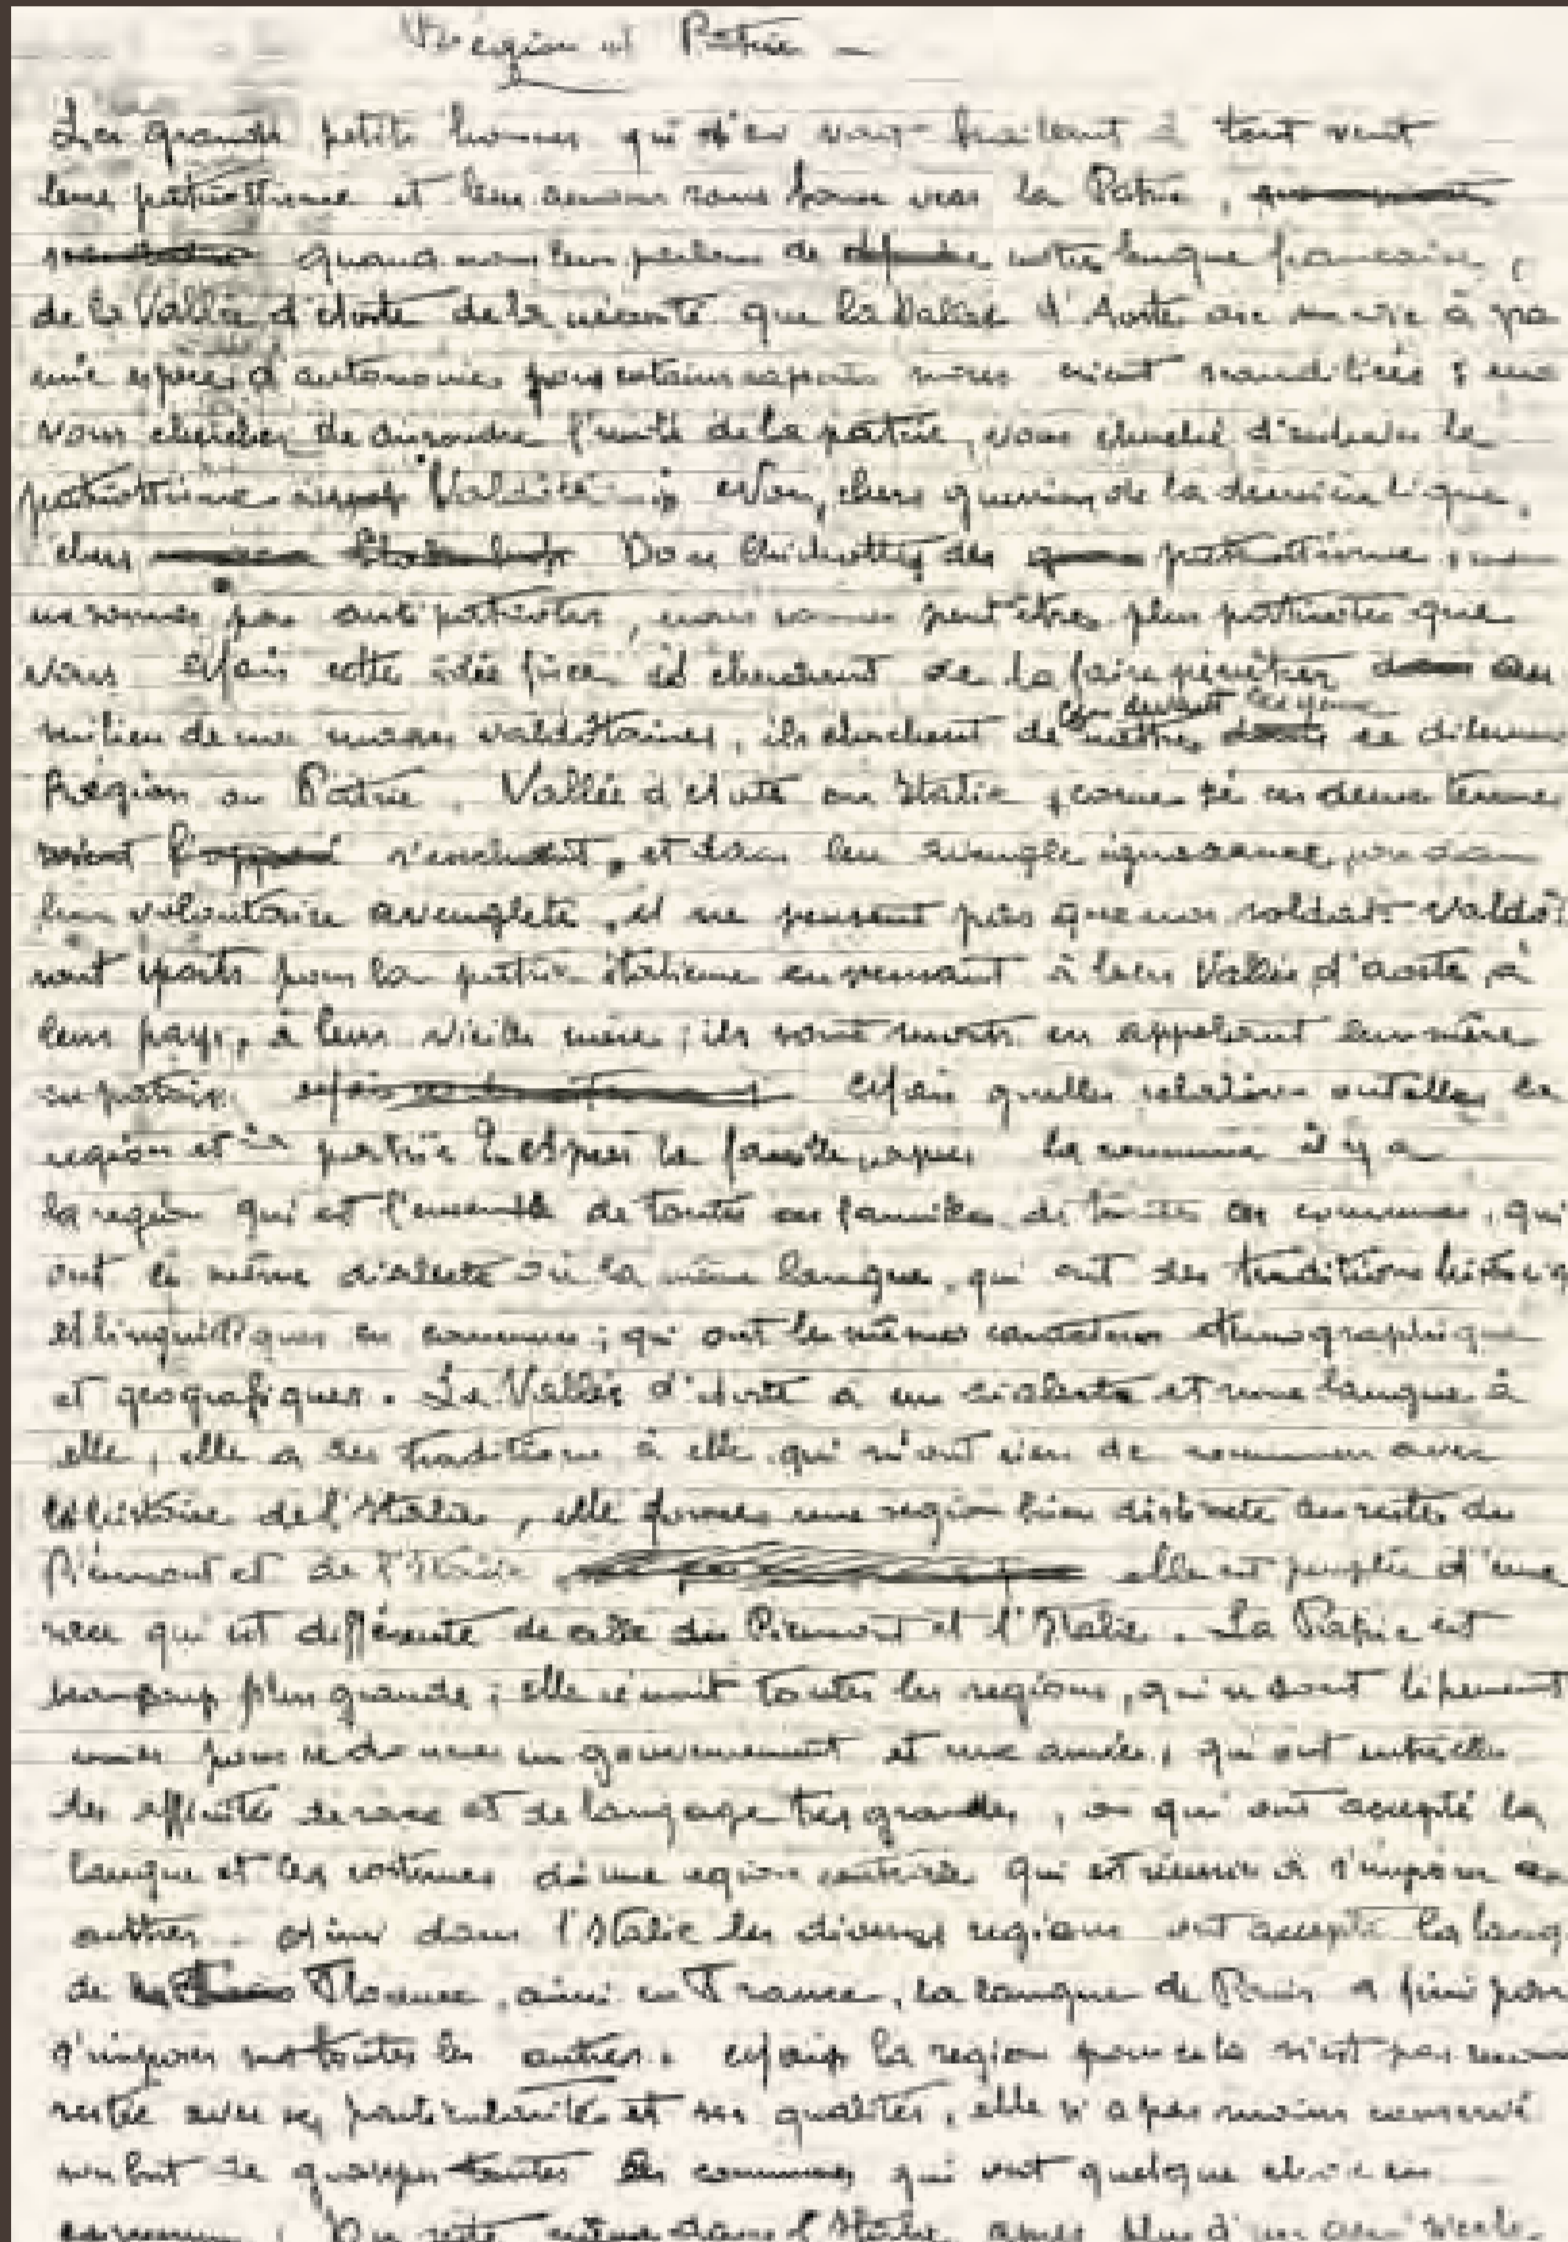 Région et Patrie —
Les grands petits hommes qui s'en vont à tout vent
leur patriottisme et leur amour sans borne vers la Patrie,
quand nous leur parlons de notre langue française,
de la Vallée d'Aoste de la necessité que la Vallée d'Aoste aie
une espèce d'autonomie, pour certains raports
vous cherchez de l'unité de la patrie, vous cherchez d'
patriottisme Non, chers guerriers de la dernière
chers Don Chichottes des patriottisme
ne sommes pas anti patriotes, nous sommes peut être plus patriotes que
vous Mais cette idée fixe ils cherchent de la faire pénétrer au
milieu de nos masses valdôtaines, ils cherchent de mettre devant les yeux ce dilemme
Région ou Patrie, Vallée d'Aoste ou Italie comme si ces deux termes
s'excluent, et dans leur aveugle ignorance, ou dans
leur volontaire aveugleté, ils ne pensent pas que nos soldats valdôt
sont morts pour la patrie italienne en pensant à leur Vallée d'Aoste, à
leur pays, à leur vieille mère; ils sont morts en appelant leur mère
en patois. Mais quelles relations ont elles la
region et la patrie? Après la famille, apres la commune il y a
la region qui est l'ensemble de toutes ces familles, de toutes ces communes, qui
ont le même dialecte ou la même langue, qui ont des traditions
et linguistiques en commun; qui ont les mêmes caractères
et geografiques. La Vallée d'Aoste a un dialecte et une langue à
elle, elle a des traditions à elle, qui n'ont rien de commun avec
l'histoire de l'Italie, elle forme une region bien distincte du reste du
Piémont et de l'Italie elle est peuplée d'une
race qui est différente de celle du Piemont et l'Italie. La Patrie est
beaucoup plus grande; elle réunit toutes les regions, qui se sont
unies pour se donner un gouvernement et une armée, qui ont entre elles
des affinités de race et de langage très grandes, ou qui ont accepté la
langue et les costumes d'une region qui est réussie à s'imposer aux
autres. Ainsi dans l'Italie les diverses regions ont accepté la lang
de Florence, ainsi en France, la langue de Paris a fini par
s'imposer sur toutes les autres. Mais la region pour cela n'est pas moins
restée avec ses particularités et ses qualités, elle n'a pas moins conservé
son but de grouper toutes les communes qui ont quelque chose en
commun, même dans l'Italie, après plus d'un demi siècle